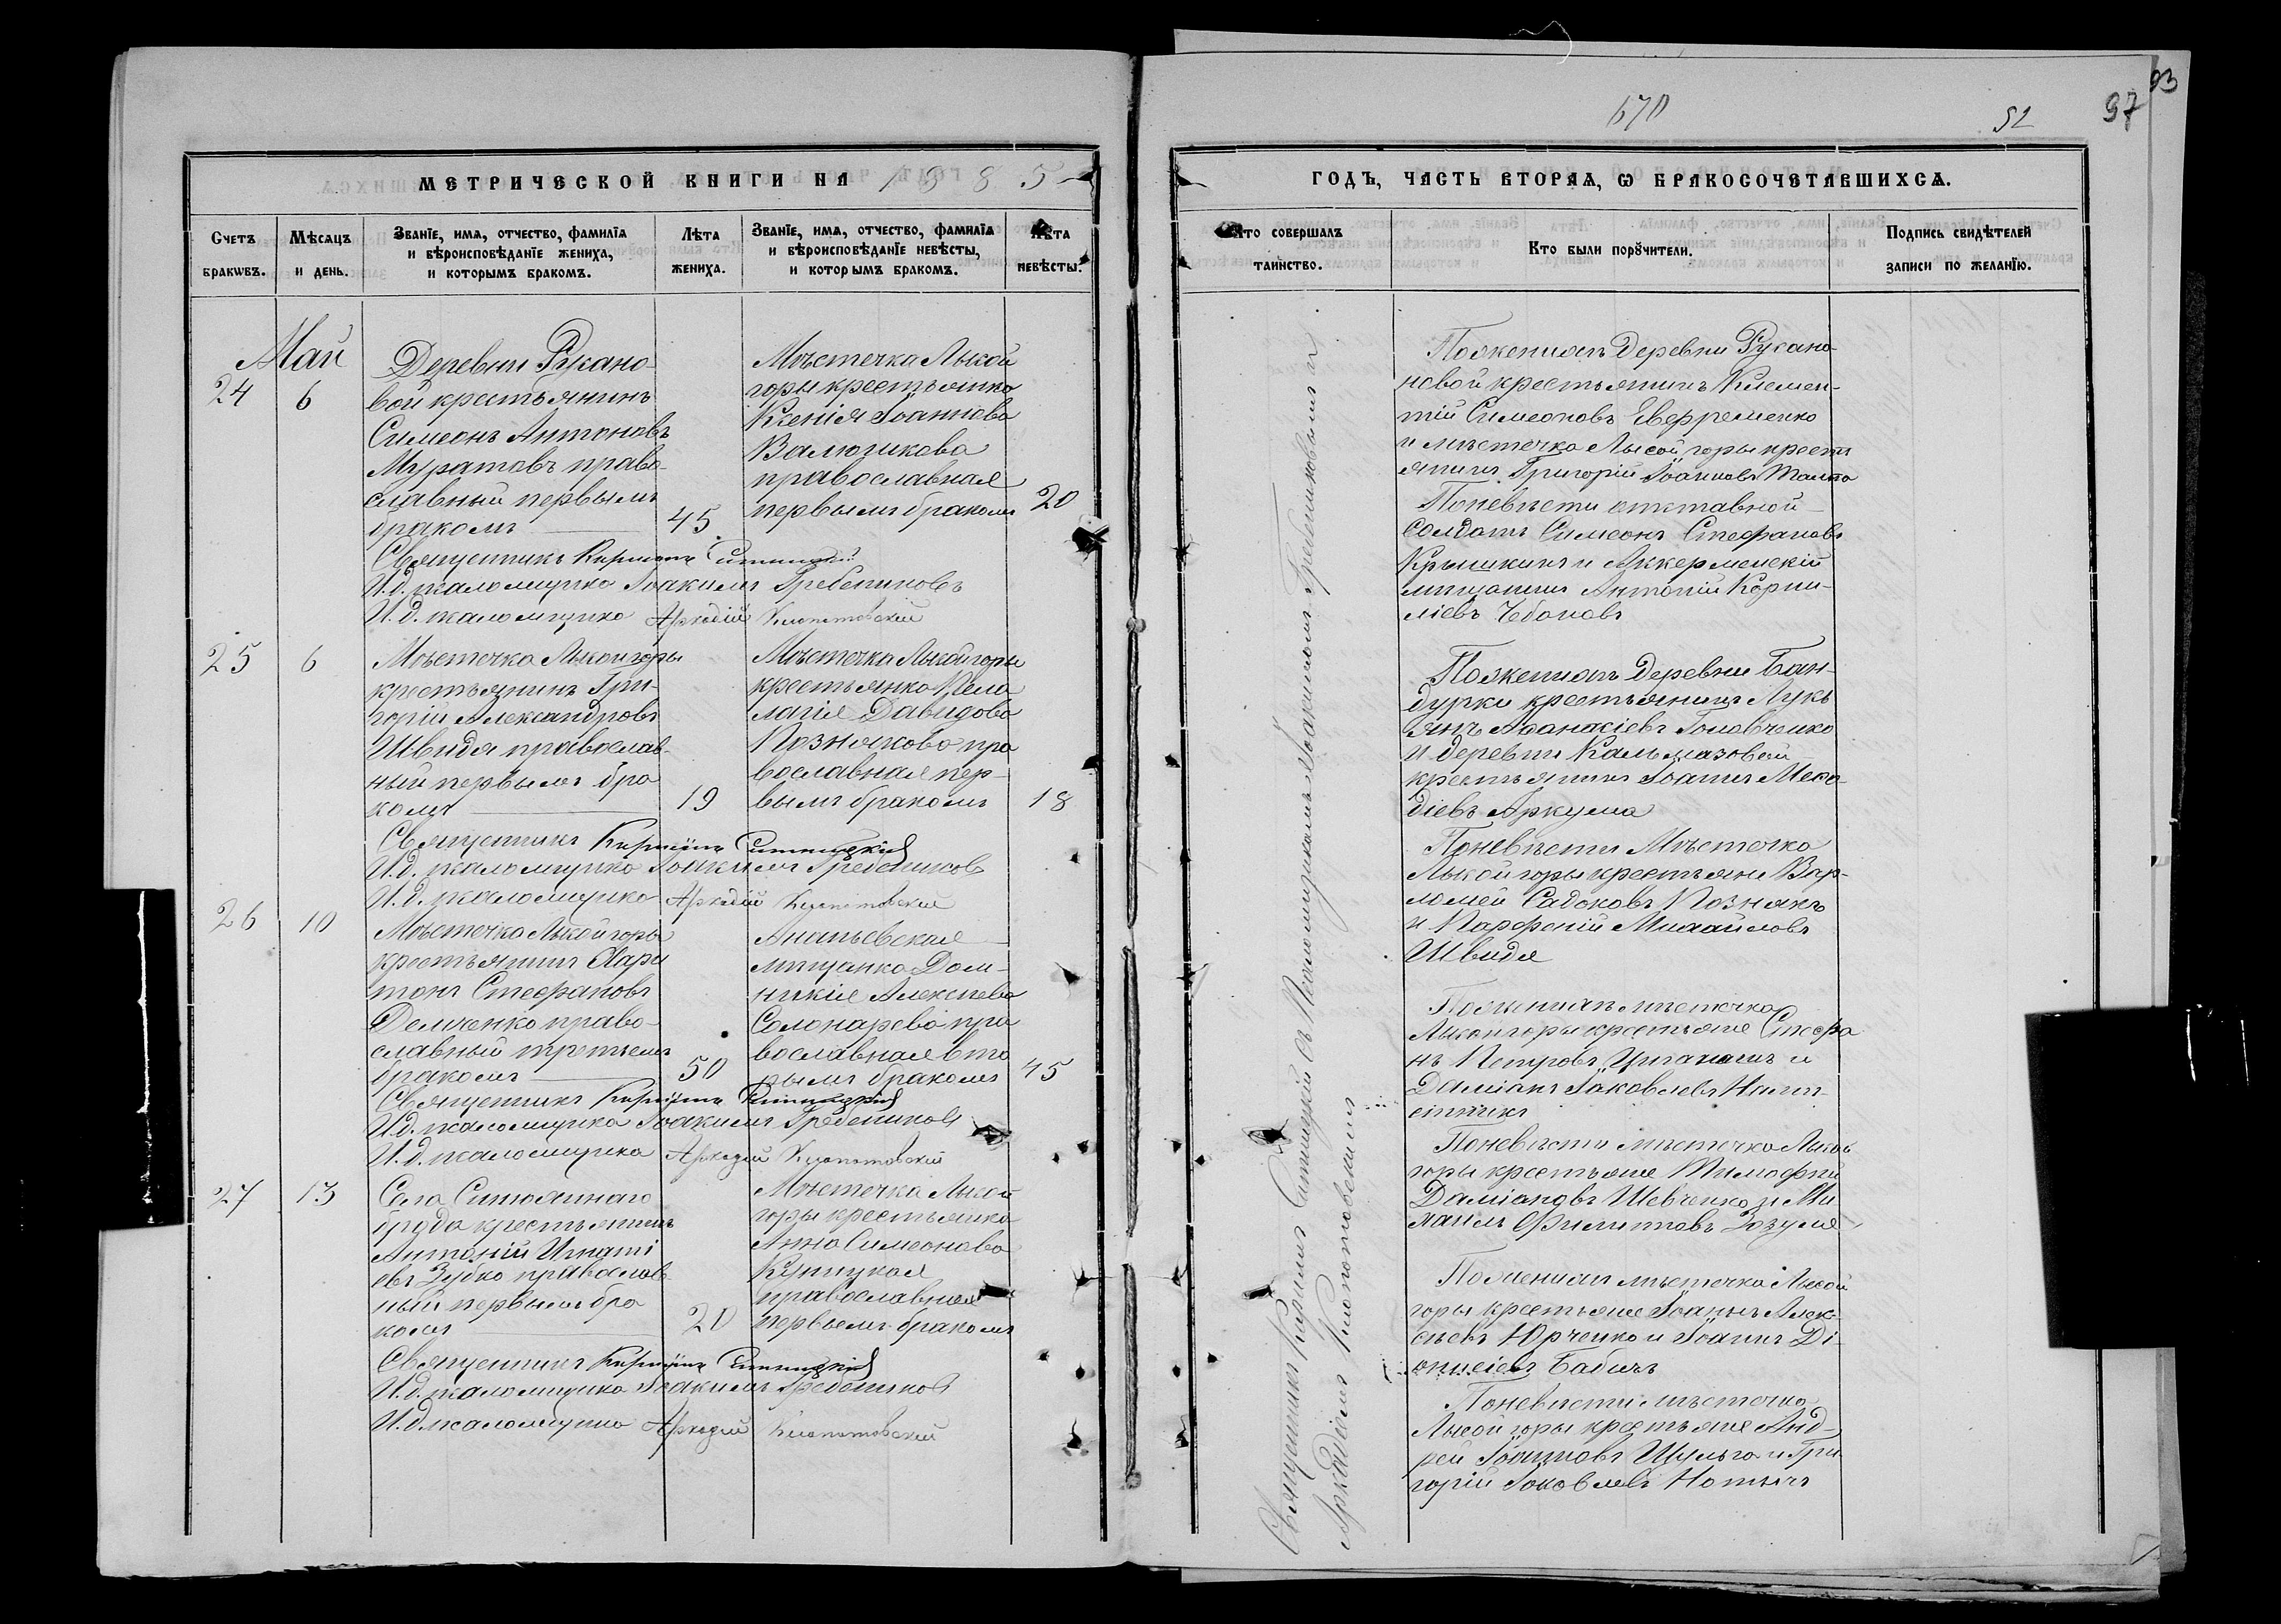 МЕТРИЧЕСКОЙ КНИГИ НА 1885
Счетъ браковъ.
Мѣсяцъ и день.
Званїе, имя, отчество, фамилїа и вѣроисповѣданїе жениха, и которымъ бракомъ.
Лѣта жениха.
Званїе, имя, отчество, фамилїа и вѣроисповѣданїе невѣсты, и которымъ бракомъ.
Лѣта невѣсты.
Май
24
6
Деревни Рукано-
вой крестьянинъ
Симеонъ Антоновъ
Муратовъ право-
славный первымъ
бракомъ
45
Мѣстечка Лысой
горы крестьянка
Ксенія Іоаннова
Валюшкова
православная
первымъ бракомъ
20
Священникъ Кириллъ Ситницкій
И.д. псаломщика Іоакимъ Гребениковъ
И.д. псаломщика Аркадій Клопотовскій
25
6
Мѣстечка Лысой горы
крестьянинъ Гри-
горій Александровъ
Швидя православ-
ный первымъ бра
комъ
19
Мѣстечка Лысой горы
крестьянка Пела
лагія Давидова
Познякова пра
вославная пер-
вымъ бракомъ
18
Священникъ Кириллъ Ситницкій
И.д. псаломщика Іоакимъ Гребениковъ
И.д. псаломщика Аркадій Клопотовскій
26
10
Мѣстечка Лысой горы
крестьянинъ Хари
тонъ Стефановъ
Демченко право-
славный третьимъ
бракомъ
50
Ананьевская
мѣщанка Дом-
никія Алексѣева
Солонарева пра
вославная вто
рымъ бракомъ
45
Священникъ Кириллъ Ситницкій
И.д. псаломщика Іоакимъ Гребениковъ
И.д. псаломщика Аркадій Клопотовскій
27
13
Села Синюшинаго
брода крестьянинъ
Антоній Игнаті
евъ Зубко православ
ный первымъ бра
комъ
20
Мѣстечка Лысой
горы крестьянка
Анна Симеонова
православная
первымъ бракомъ
Священникъ Кириллъ Ситницкій
И.д. псаломщика Іоакимъ Гребениковъ
И.д. псаломщика Аркадій Клопотовскій
670
52
97
93
ГОДЪ, ЧАСТЬ ВТОРАЯ, Ѡ БРАКОСОЧЕТАВШИХСЯ.
Кто совершалъ таинство.
Кто были порꙋчители.
Подпись свидѣтелей записи по желанїю.
Священникъ Кириллъ Ситницкій съ Псаломщикомъ Іоакимомъ Гребениковымъ и
Аркадіемъ Клопотовскимъ
По женихѣ деревни Рукано-
новой крестьянинъ Клемен-
тій Симеоновъ Евфременко
и мѣстечка Лысой горы крестъ
янинъ Григорій Іоанновъ
По невѣсти отставной
солдатъ Симеонъ Стефановъ
Крышкинъ и Аккерменскій
мѣщанинъ Антоній Корни-
ліевъ Чебановъ
По женихѣ деревни Бан-
дурки крестьянинъ Лукь
янъ Аѳанасіевъ Головченко
и деревни Кальмазовой
крестьянинъ Іоаннъ Меѳо
діевъ Аркуша
По невѣсти Мѣстечка
Лысой горы крестьяне Вар-
ломей Садоковъ Познякъ
и Парфеній Михайловъ
Швидя
По женихѣ мѣстечка
Лысой горы крестьяне Стефа
нъ Петровъ и
Даміанъ Іаковлевъ
По невѣсти мѣстечка Лысой
горы крестьяне Тимофей
Даміановъ Шевченко и Ми
хаилъ Филипповъ Зозуля
По женихѣ мѣстечка Лысой
горы крестьяне Іоаннъ Алек-
сѣевъ Юрченко и Іоаннъ Ді-
онисіевъ Бабичъ
По невѣсти мѣстечка
Лысой горы крестьяне Анд-
рей Іоанновъ Шульга и Гри
горій Іаковлевъ